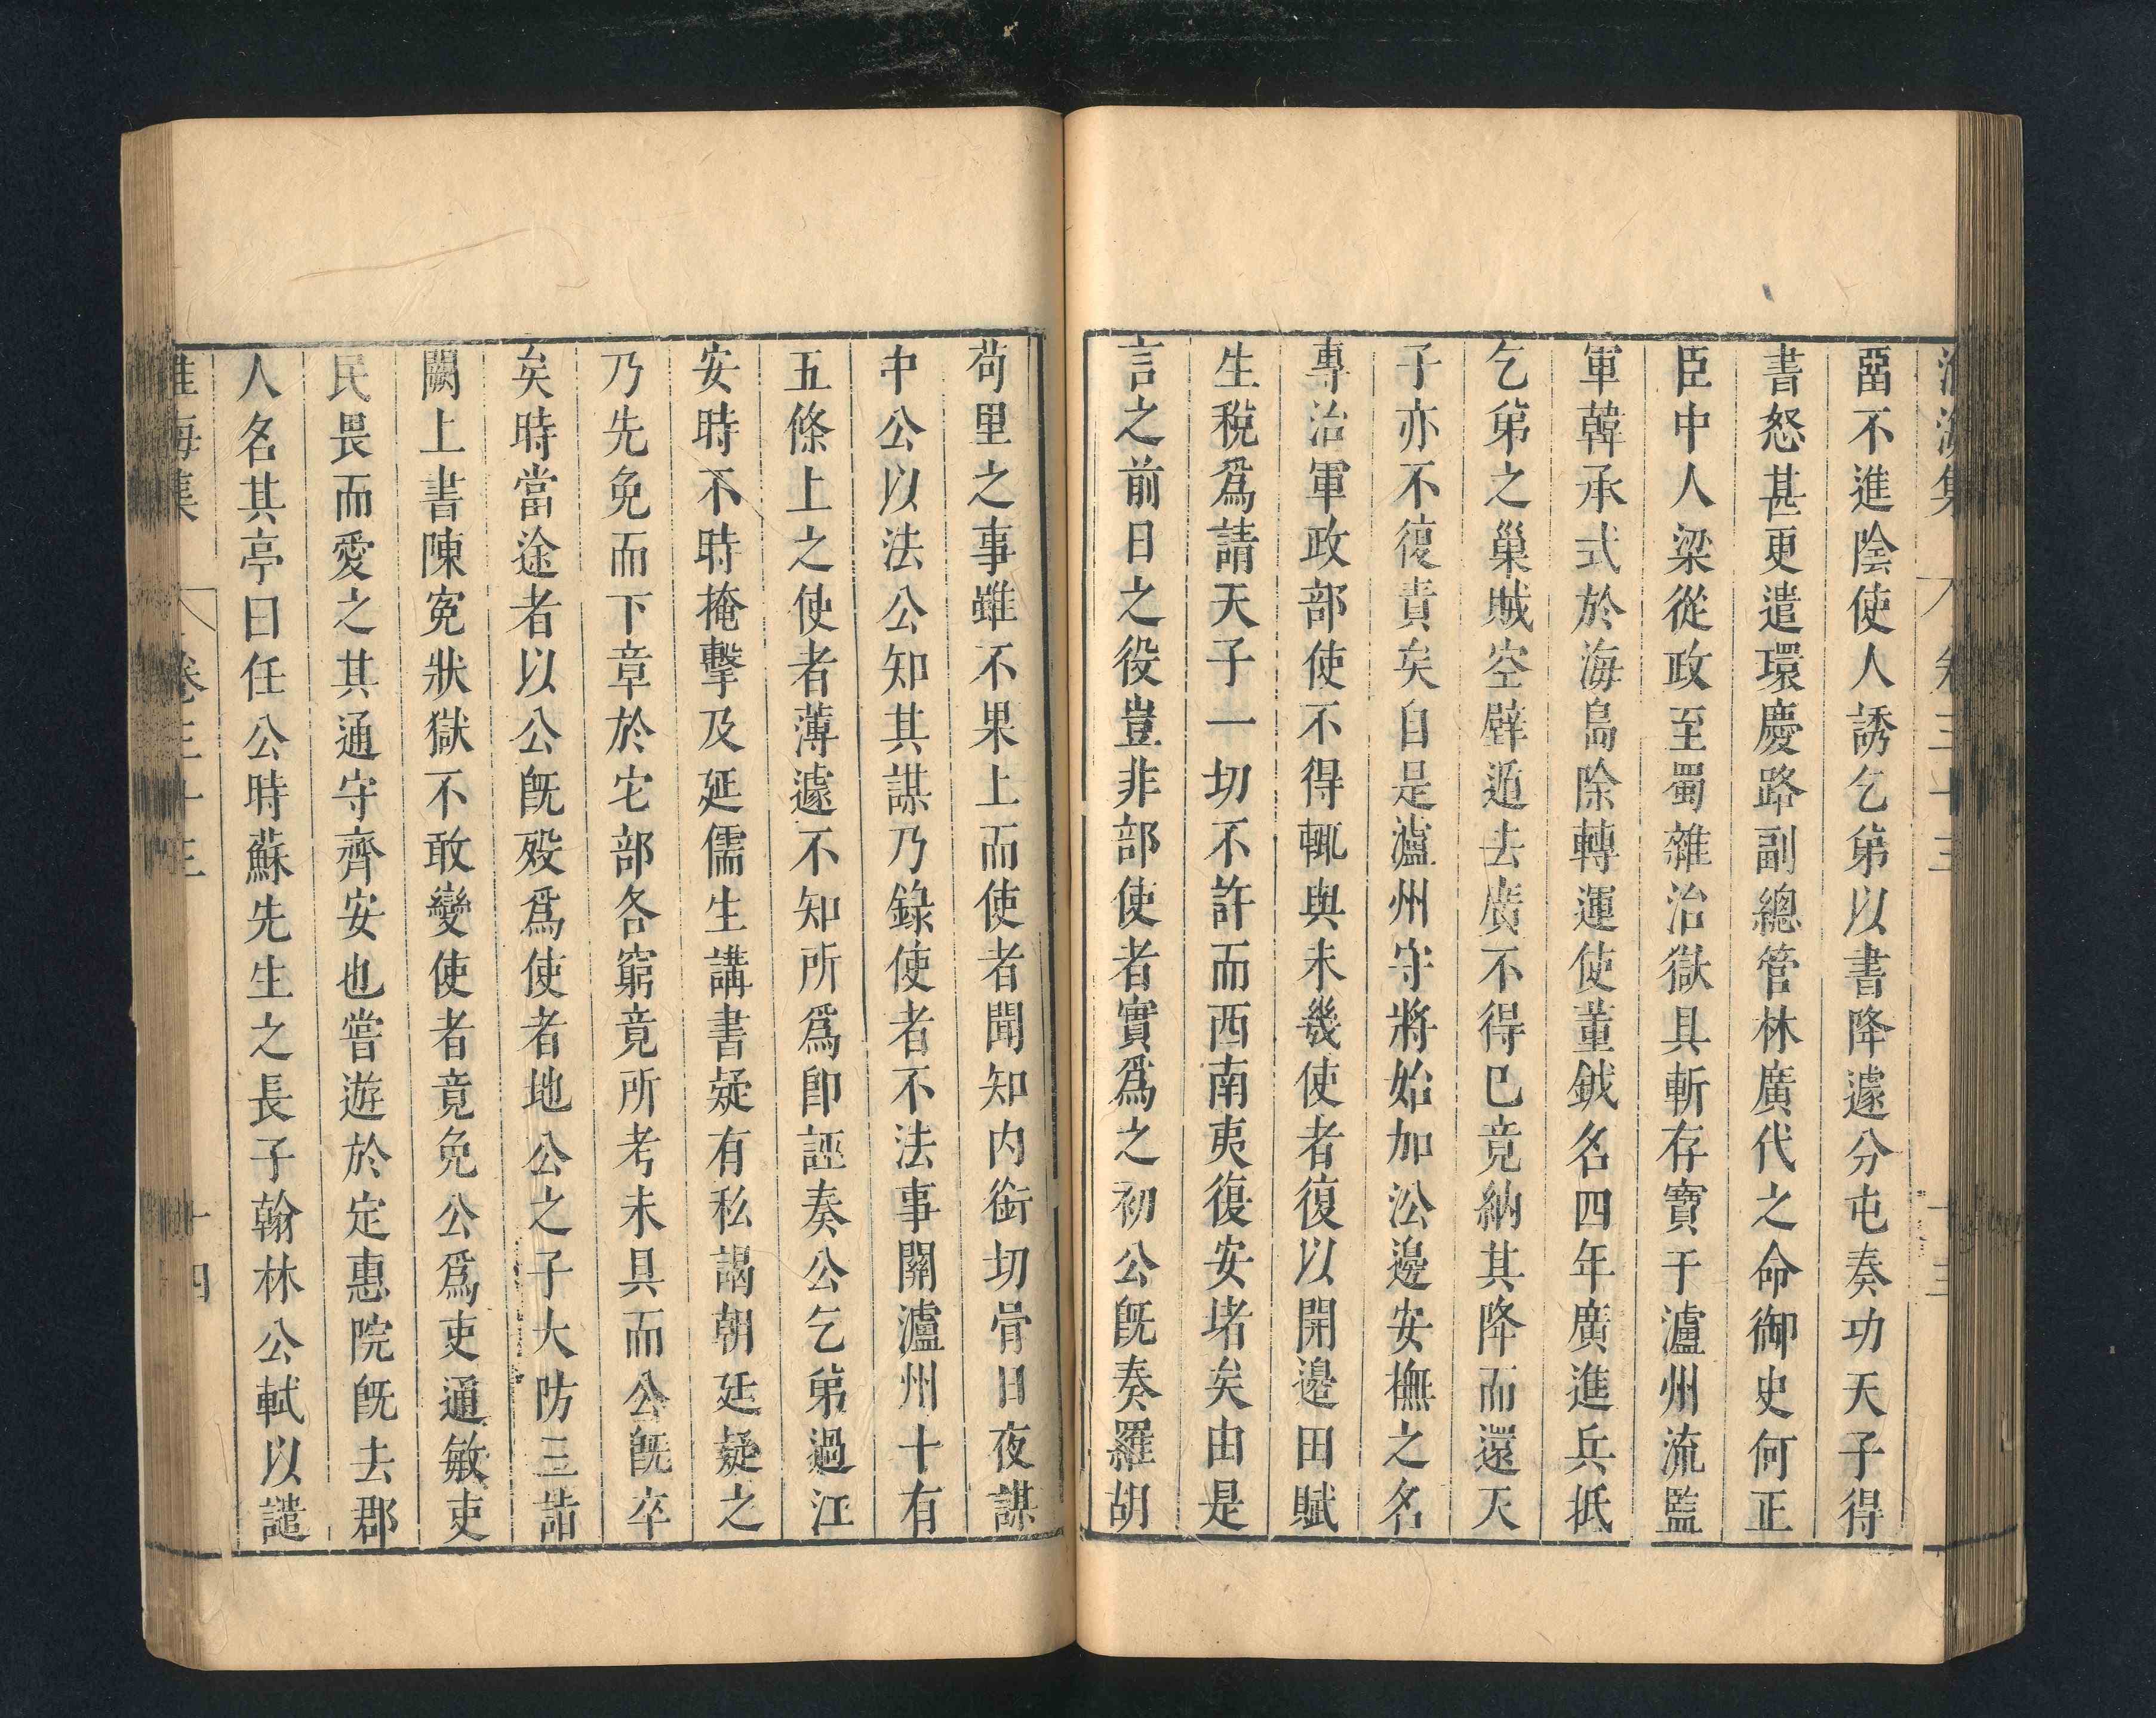 淮海集 卷三十三 十三
畱不進陰使人誘乞弟以書降遽分屯奏功天子得
書怒甚更遣環慶路副總管林廣代之命御史何正
臣中人梁從政至蜀雜治獄具斬存寶于瀘州流監
軍韓承式於海島除轉運使董鉞名四年廣進兵抵
乞弟之巢賊空壁遁去廣不得已竟納其降而還天
子亦不復責矣自是瀘州守將始加沿邊安撫之名
專治軍政部使不得輒與未幾使者復以開邊田賦
生稅爲請天子一切不許而西南夷復安堵矣由是
言之前日之役豈非部使者實爲之初公旣奏羅胡
苟里之事雖不果上而使者聞知内銜切骨日夜謀
中公以法公知其謀乃錄使者不法事關瀘州十有
五條上之使者薄遽不知所爲卽誣奏公乞弟過江
安時不時掩擊及延儒生講書疑有私謁朝廷疑之
乃先免而下章於宅部各窮竟所考未具而公旣卒
矣時當途者以公旣歿爲使者地公之子大防三詣
闕上書陳寃狀獄不敢變使者竟免公爲吏通敏吏
民畏而愛之其通守齊安也嘗遊於定惠院旣去郡
人名其亭曰任公時蘇先生之長子翰林公軾以譴
淮海集 卷三十三 十四